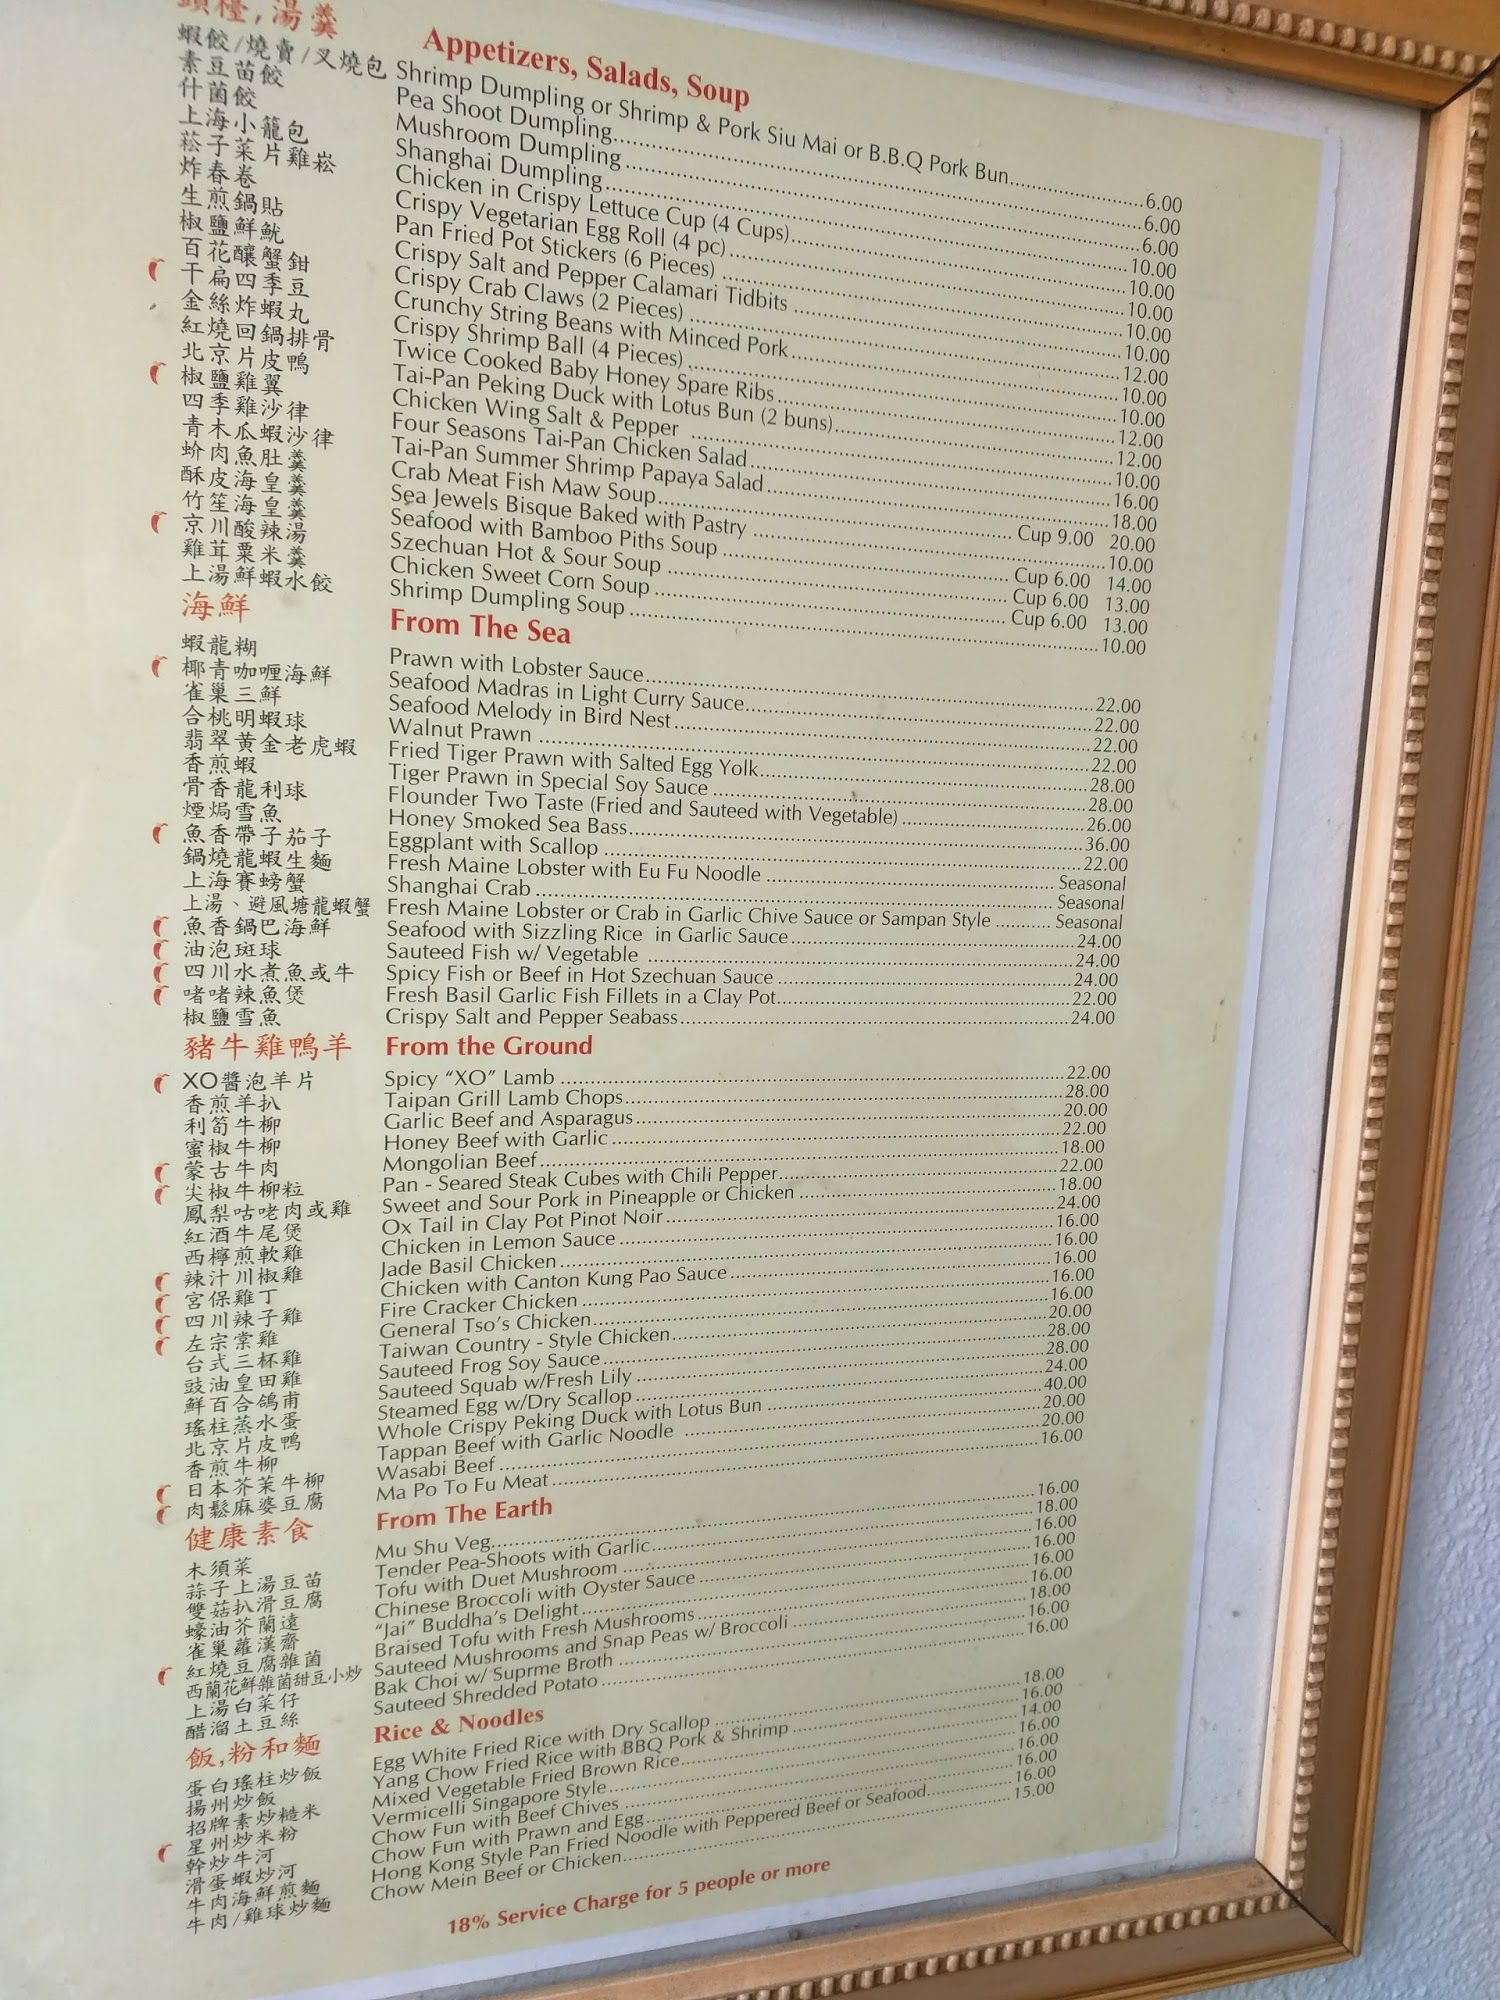 頭檯,湯羹 Appetizers, Salads, Soup
蝦餃/燒賣/叉燒包 Shrimp Dumpling or Shrimp & Pork Siu Mai or B.B.Q Pork Bun 6.00
素豆苗餃 Pea Shoot Dumpling 6.00
什菌餃 Mushroom Dumpling 6.00
上海小籠包 Shanghai Dumpling 10.00
菘子菜片雞崧 Chicken in Crispy Lettuce Cup (4 Cups) 10.00
炸春卷 Crispy Vegetarian Egg Roll (4 pc) 10.00
生煎鍋貼 Pan Fried Pot Stickers (6 Pieces) 10.00
椒鹽鮮魷 Crispy Salt and Pepper Calamari Tidbits 10.00
百花釀蟹鉗 Crispy Crab Claws (2 Pieces) 12.00
干扁四季豆 Crunchy String Beans with Minced Pork 10.00
金絲炸蝦丸 Crispy Shrimp Ball (4 Pieces) 10.00
紅燒回鍋排骨 Twice Cooked Baby Honey Spare Ribs 12.00
北京片皮鴨 Tai-Pan Peking Duck with Lotus Bun (2 buns) 12.00
椒鹽雞翼 Chicken Wing Salt & Pepper 10.00
四季雞沙律 Four Seasons Tai-Pan Chicken Salad 16.00
青木瓜蝦沙律 Tai-Pan Summer Shrimp Papaya Salad 18.00
蚧肉魚肚羹 Crab Meat Fish Maw Soup Cup 9.00 20.00
酥皮海皇羹 Sea Jewels Bisque Baked with Pastry 10.00
竹笙海皇羹 Seafood with Bamboo Piths Soup Cup 6.00 14.00
京川酸辣湯 Szechuan Hot & Sour Soup Cup 6.00 13.00
雞茸粟米羹 Chicken Sweet Corn Soup Cup 6.00 13.00
上湯鮮蝦水餃 Shrimp Dumpling Soup 10.00
海鮮 From The Sea
蝦龍糊 Prawn with Lobster Sauce 22.00
椰青咖喱海鮮 Seafood Madras in Light Curry Sauce 22.00
雀巢三鮮 Seafood Melody in Bird Nest 22.00
合桃明蝦球 Walnut Prawn 22.00
翡翠黄金老虎蝦 Fried Tiger Prawn with Salted Egg Yolk 28.00
香煎蝦 Tiger Prawn in Special Soy Sauce 28.00
骨香龍利球 Flounder Two Taste (Fried and Sauteed with Vegetable) 26.00
煙焗雪魚 Honey Smoked Sea Bass 36.00
魚香帶子茄子 Eggplant with Scallop 22.00
鍋燒龍蝦生麵 Fresh Maine Lobster with Eu Fu Noodle Seasonal
上海賽螃蟹 Shanghai Crab Seasonal
上湯、避風塘龍蝦蟹 Fresh Maine Lobster or Crab in Garlic Chive Sauce or Sampan Style Seasonal
魚香鍋巴海鮮 Seafood with Sizzling Rice in Garlic Sauce 24.00
油泡斑球 Sauteed Fish w/ Vegetable 24.00
四川水煮魚或牛 Spicy Fish or Beef in Hot Szechuan Sauce 24.00
啫啫辣魚煲 Fresh Basil Garlic Fish Fillets in a Clay Pot 22.00
椒鹽雪魚 Crispy Salt and Pepper Seabass 24.00
豬牛雞鴨羊 From the Ground
XO醬泡羊片 Spicy “XO” Lamb 22.00
香煎羊扒 Taipan Grill Lamb Chops 28.00
利筍牛柳 Garlic Beef and Asparagus 20.00
蜜椒牛柳 Honey Beef with Garlic 22.00
蒙古牛肉 Mongolian Beef 18.00
尖椒牛柳粒 Pan - Seared Steak Cubes with Chili Pepper 22.00
鳳梨咕咾肉或雞 Sweet and Sour Pork in Pineapple or Chicken 18.00
紅酒牛尾煲 Ox Tail in Clay Pot Pinot Noir 24.00
西檸煎軟雞 Chicken in Lemon Sauce 16.00
辣汁川椒雞 Jade Basil Chicken 16.00
宮保雞丁 Chicken with Canton Kung Pao Sauce 16.00
四川辣子雞 Fire Cracker Chicken 16.00
左宗棠雞 General Tso’s Chicken 16.00
台式三杯雞 Taiwan Country - Style Chicken 20.00
豉油皇田雞 Sauteed Frog Soy Sauce 28.00
鮮百合鴿甫 Sauteed Squab w/Fresh Lily 28.00
瑤柱蒸水蛋 Steamed Egg w/Dry Scallop 24.00
北京片皮鴨 Whole Crispy Peking Duck with Lotus Bun 40.00
香煎牛柳 Tappan Beef with Garlic Noodle 20.00
日本芥茉牛柳 Wasabi Beef 20.00
肉鬆麻婆豆腐 Ma Po To Fu Meat 16.00
健康素食 From The Earth
木須菜 Mu Shu Veg 16.00
蒜子上湯豆苗 Tender Pea-Shoots with Garlic 18.00
雙菇扒滑豆腐 Tofu with Duet Mushroom 16.00
蠔油芥蘭遠 Chinese Broccoli with Oyster Sauce 16.00
雀巢蘿漢齋 “Jai” Buddha’s Delight 16.00
紅燒豆腐雜菌 Braised Tofu with Fresh Mushrooms 16.00
西蘭花鮮雜菌甜豆小炒 Sauteed Mushrooms and Snap Peas w/ Broccoli 18.00
上湯白菜仔 Bak Choi w/ Suprme Broth 16.00
醋溜土豆絲 Sauteed Shredded Potato 16.00
飯,粉和麵 Rice & Noodles
蛋白瑤柱炒飯 Egg White Fried Rice with Dry Scallop 18.00
揚州炒飯 Yang Chow Fried Rice with BBQ Pork & Shrimp 16.00
招牌素炒糙米 Mixed Vegetable Fried Brown Rice 14.00
星州炒米粉 Vermicelli Singapore Style 16.00
幹炒牛河 Chow Fun with Beef Chives 16.00
滑蛋蝦炒河 Chow Fun with Prawn and Egg 16.00
牛肉海鮮煎麵 Hong Kong Style Pan Fried Noodle with Peppered Beef or Seafood 16.00
牛肉/雞球炒麵 Chow Mein Beef or Chicken 15.00
18% Service Charge for 5 people or more